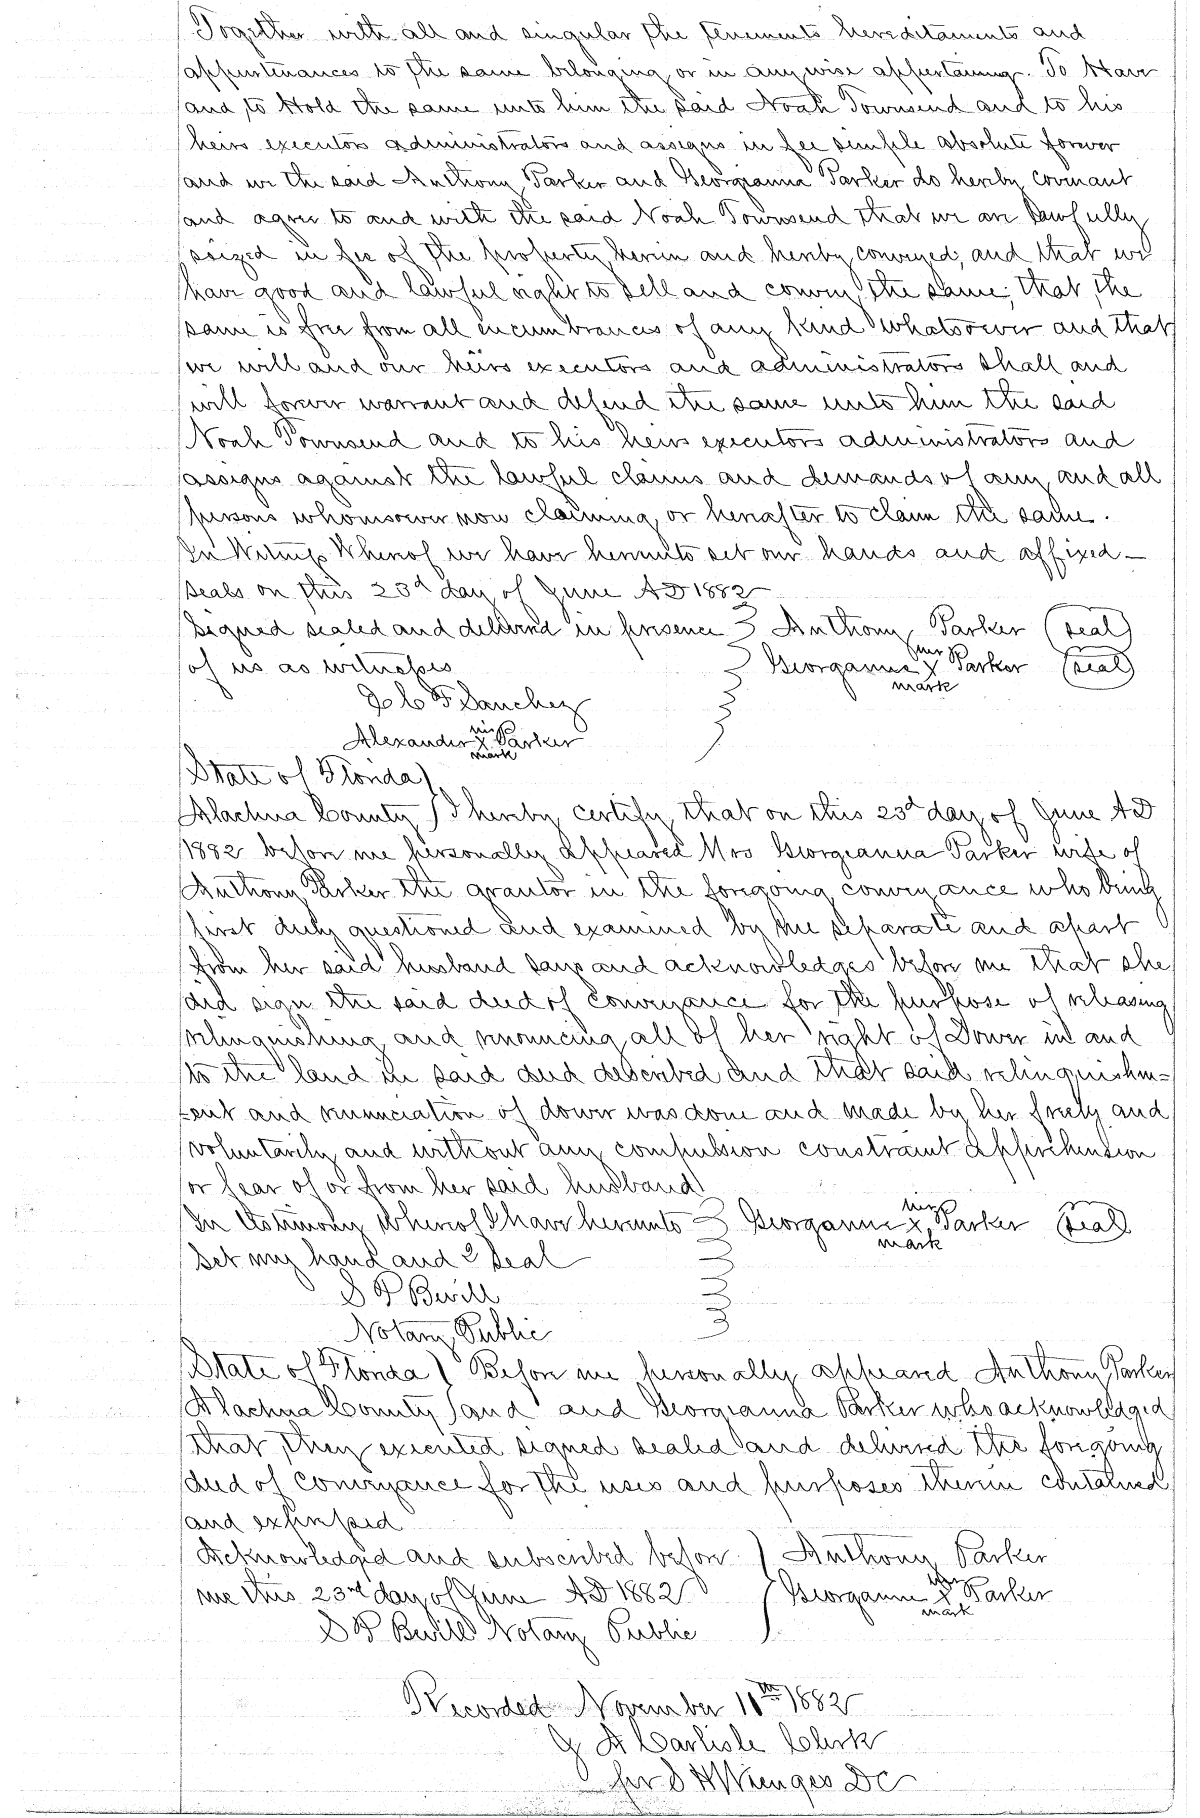 Together with all and singular the tenements hereditaments and
appurtenances to the same belonging or in any wise appertaining. To Have
and to Hold the same unto him the said Noah Townsend and to his
heirs executors administrators and assigns in fee simple absolute forever
and we the said Anthony Parker and Georgianna Parker do hereby covenant
and agree to and with the said Noah Townsend that we are lawfully
seized in fee of the property herein and hereby conveyed, and that we
have good and lawful right to sell and convey the same; that the
same is free from all encumbrances of any kind whatsoever and that
we will and our heirs executors and administrators shall and
will forever warrant and defend the same unto him the said
Noah Townsend and to his heirs executors administrators and
assigns against the lawful claims and demands of any and all
persons whomsoever now claiming or hereafter to claim the same.
In Witness Whereof we have hereunto set our hands and affixed
seals on this 23d day of June AD 1882
Signed sealed and delivered in presence Anthony Parker (seal)
of us as witnesses Georganne her X mark Parker (seal)
F Sanchez
Alexander his X mark Parker
State of Florida)
Alachua County ) I hereby certify that on this 23d day of June AD
1882 before me personally appeared Mrs Georgeanna Parker wife of
Anthony Parker the grantor in the foregoing conveyance who being
first duly questioned and examined by me separate and apart
from her said husband says and acknowledges before me that she
did sign the said deed of conveyance for the purpose of releasing
relinquishing and renouncing all of her right of Dower in and
to the land in said deed described and that said relinquishm=
=ent and renunciation of dower was done and made by her freely and
voluntarily and without any compulsion constraint apprehension
or fear of or from her said husband
In testimony whereof I have hereunto Georganne her X mark Parker (seal)
set my hand and seal
S P Bevill
Notary Public
State of Florida ) Before me personally appeared Anthony Parker
Alachua County ) and and Georgianna Parker who acknowledged
that they executed signed sealed and delivered the foregoing
deed of conveyance for the uses and purposes therein contained
and expressed
Acknowledged and subscribed before ) Anthony Parker
me this 23rd day of June AD 1882 Georganne her X mark Parker
S P Bevill Notary Public
Recorded November 11th 1882
J A Carlisle Clerk
per S H Wienges DC